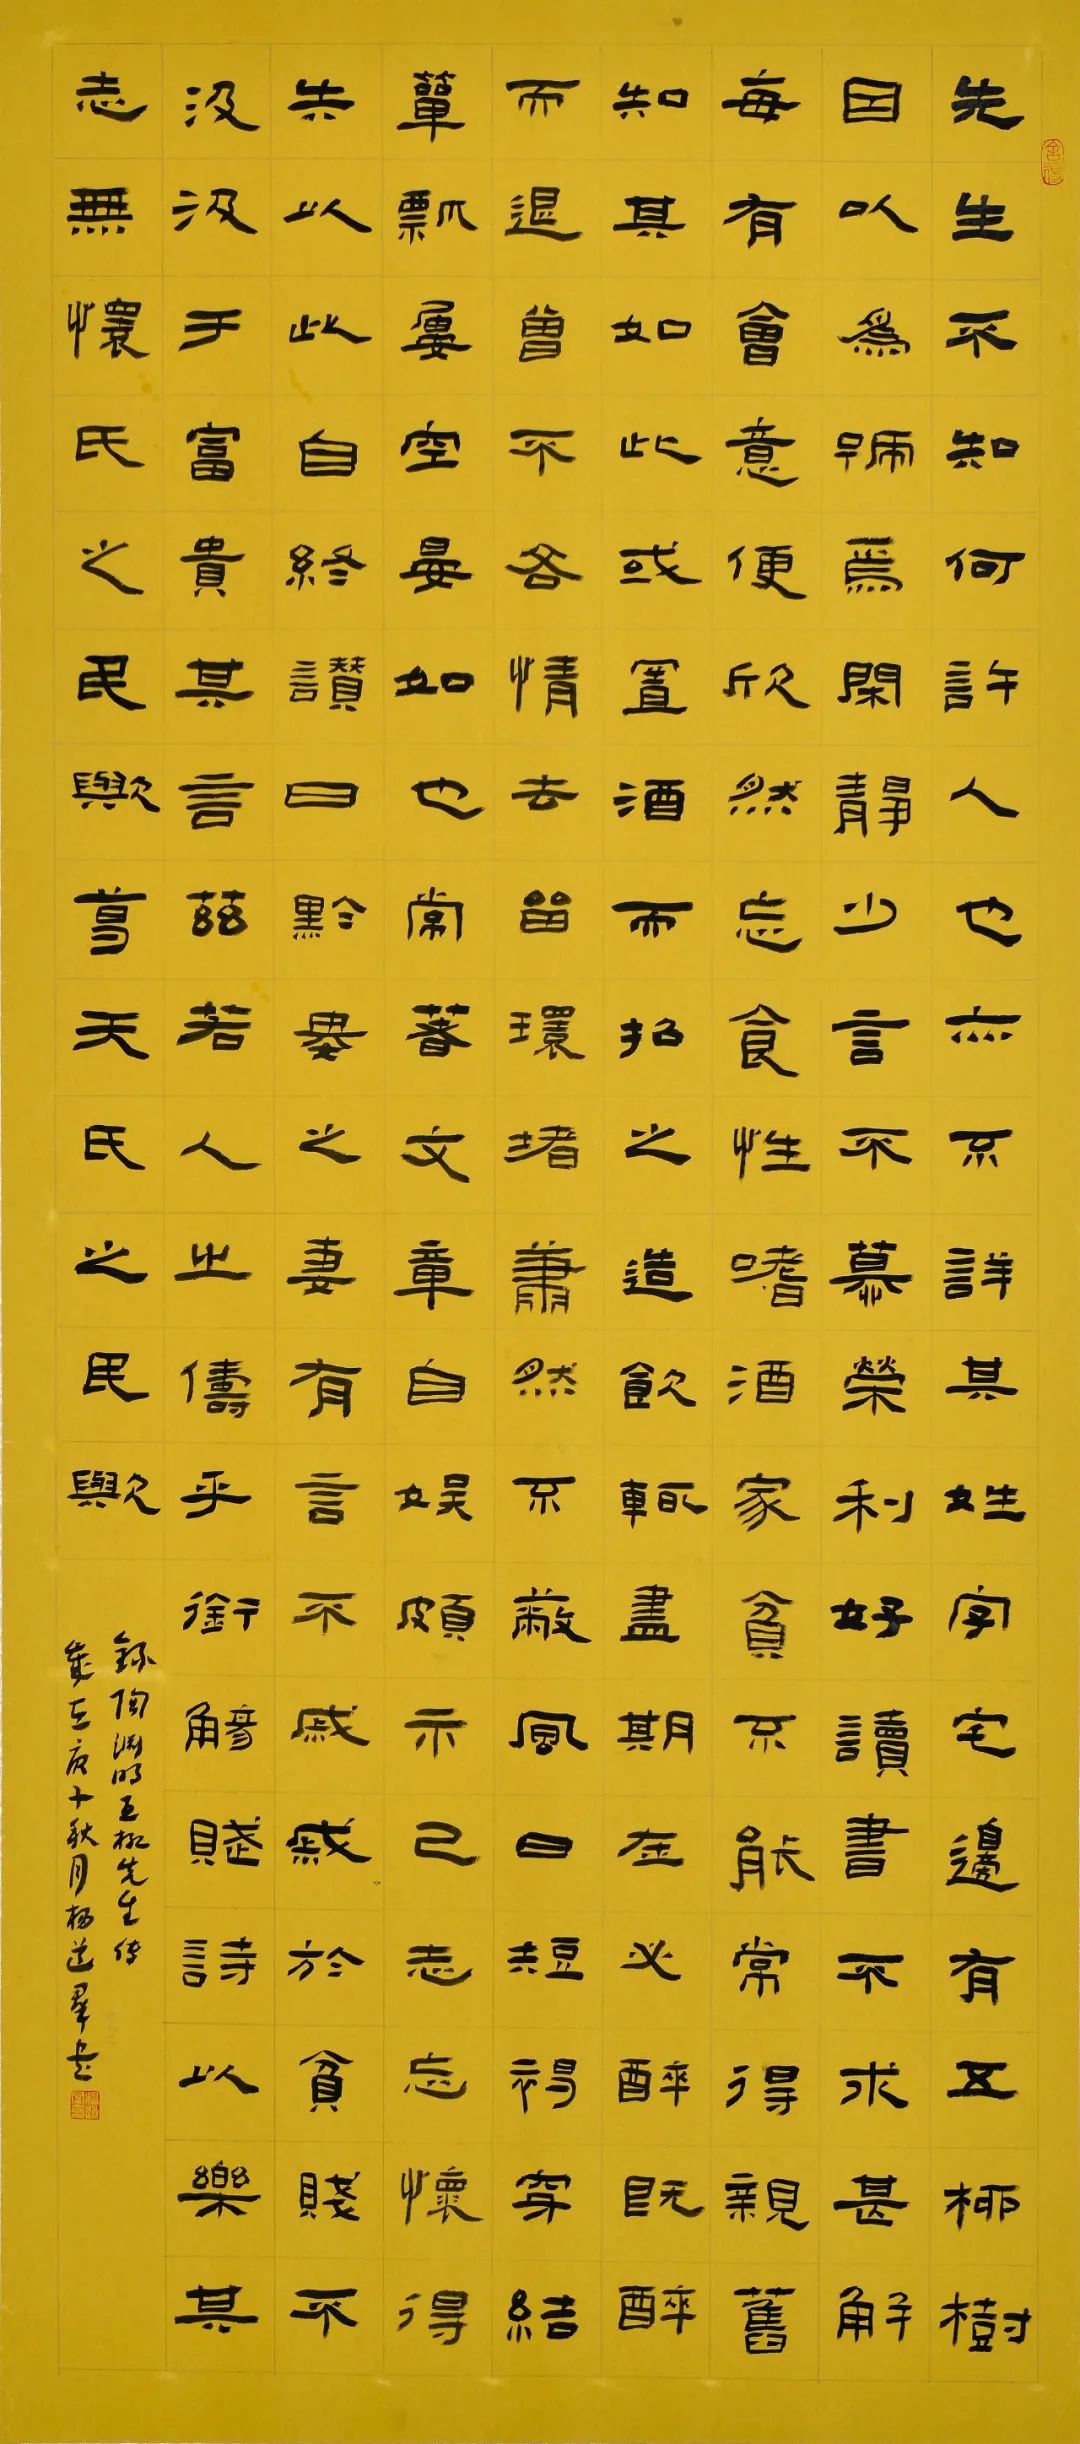 先生不知何許人也亦不詳其姓字宅邊有五柳樹
因以為號焉閑靜少言不慕榮利好讀書不求甚解
每有會意便欣然忘食性嗜酒家貧不能常得親舊
知其如此或置酒而招之造飲輒盡期在必醉既醉
而退曾不吝情去留環堵蕭然不蔽風日短褐穿結
簞瓢屢空晏如也常著文章自娛頗示己志忘懷得
失以此自終讚曰黔婁之妻有言不戚戚於貧賤不
汲汲于富貴其言茲若人之儔乎銜觴賦詩以樂其
志無懷氏之民歟葛天氏之民歟
錄陶淵明五柳先生传
歲在庚子秋月楊道羣書
舍得